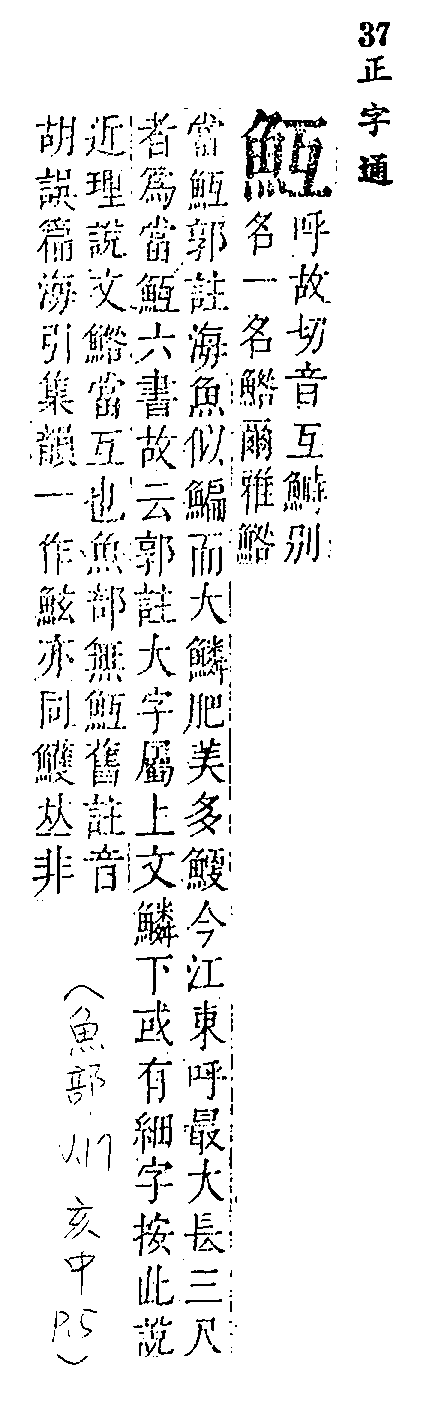 37正字通
䱍
呼故切音互鰣別
名一名鯦爾雅鯦
當䱍郭註海魚似鯿而大鱗肥美多鯁今江東呼最大長三尺
者爲當䱍六書故云郭註大字屬上文鱗下或有細字按此說
近理說文鯦當互也魚部無䱍舊註音
胡誤篇海引集韻一作鮌亦同鱯𠀤非
(魚部 V.17 亥中 P.5)